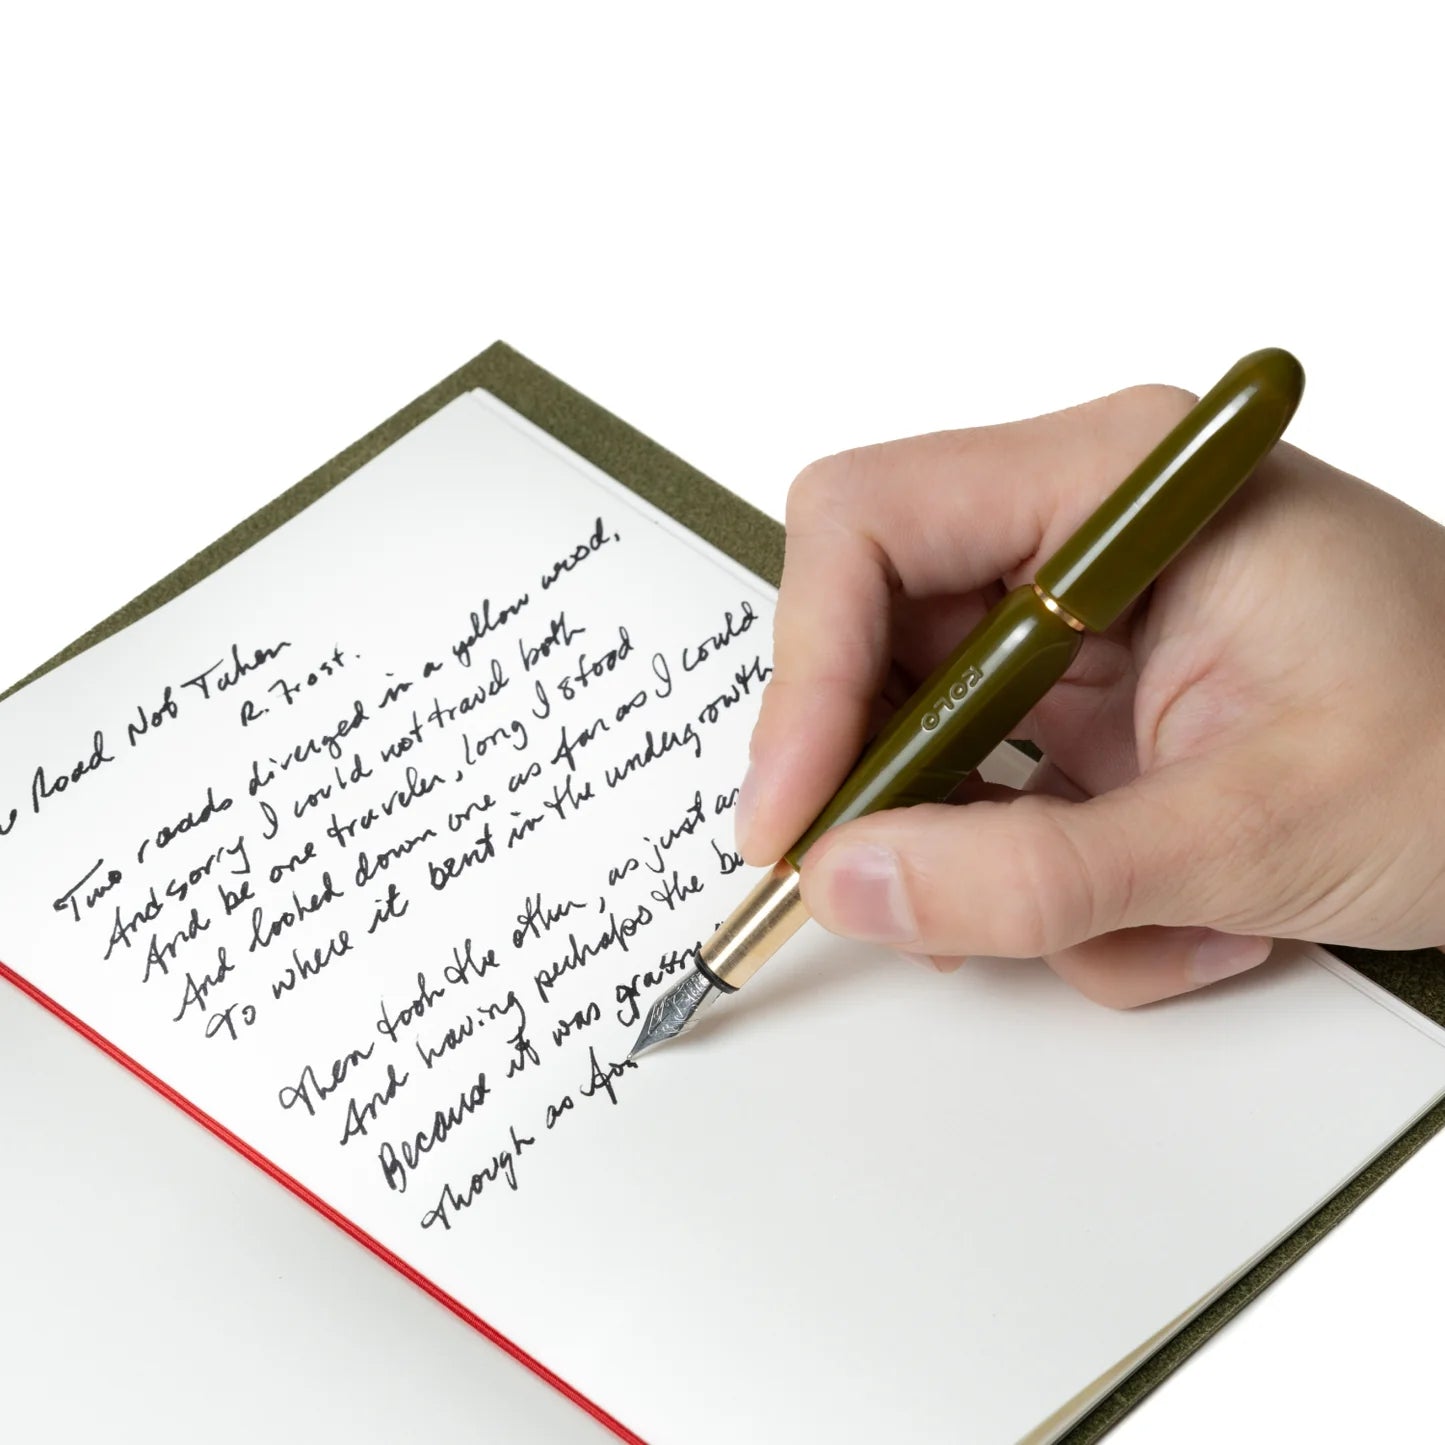 Road Not Taken
R. Frost.
Two roads diverged in a yellow wood,
And sorry I could not travel both
And be one traveler, long I stood
And looked down one as far as I could
To where it bent in the undergrowth
Then took the other, as just as
And having perhaps the be
Because it was grassy
Though as for
KOLO